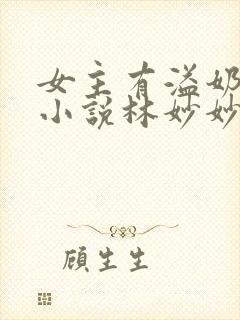 女主有溢奶
小说林妙妙
顾生生